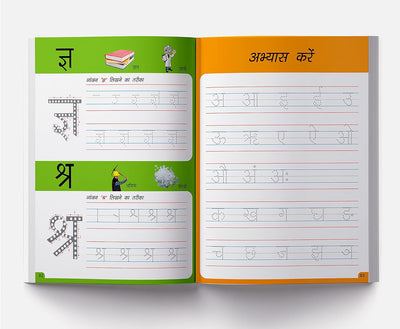 ज्ञ
ज्ञान
व्यंजन 'ज्ञ' लिखने का तरीका
ज्ञ
ज्ञ ज्ञ ज्ञ ज्ञ
श्र
श्रमिक
व्यंजन 'श्र' लिखने का तरीका
श्र
श्र श्र श्र
श्र श्र श्र श्र
अभ्यास करें
अ आ इ ई उ
ऊ ऋ ए ऐ ओ
औ अं अः
क ख ग घ ङ
च छ ज झ ञ